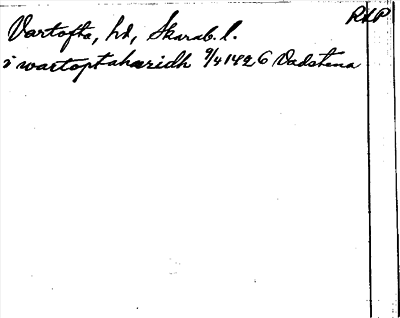 RLP
Vartofta, hd, Skarab. l.
i wartoptahæridh 9/4 1426 Vadstena